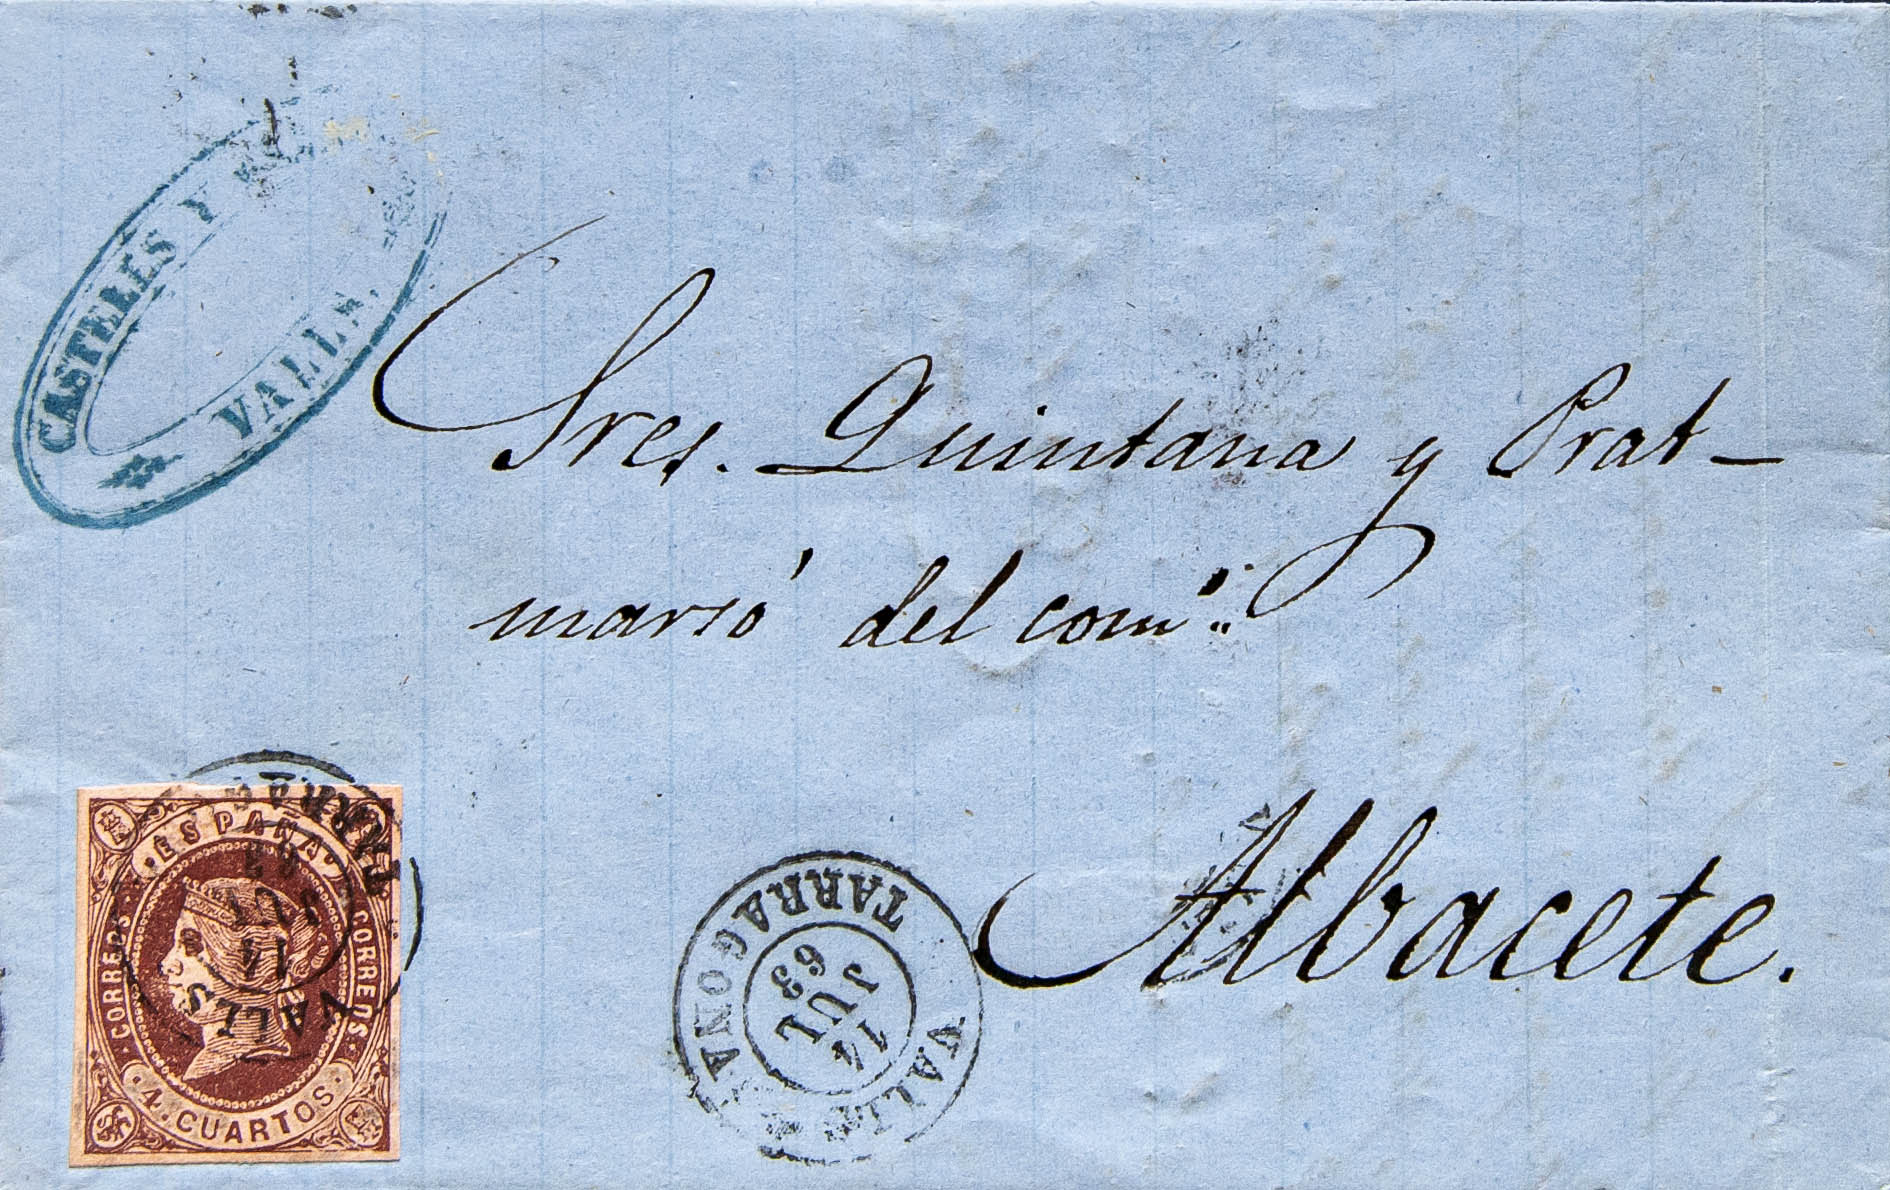 CASTELLS Y
VALLS.
Sres. Quintana y Prat—
del com.º
Albacete.
ESPAÑA
CORREOS
CORREOS
4. CUARTOS
TARRAG
63
JUL
14
VALLS
TARRAGONA
63
JUL
14
VALLS